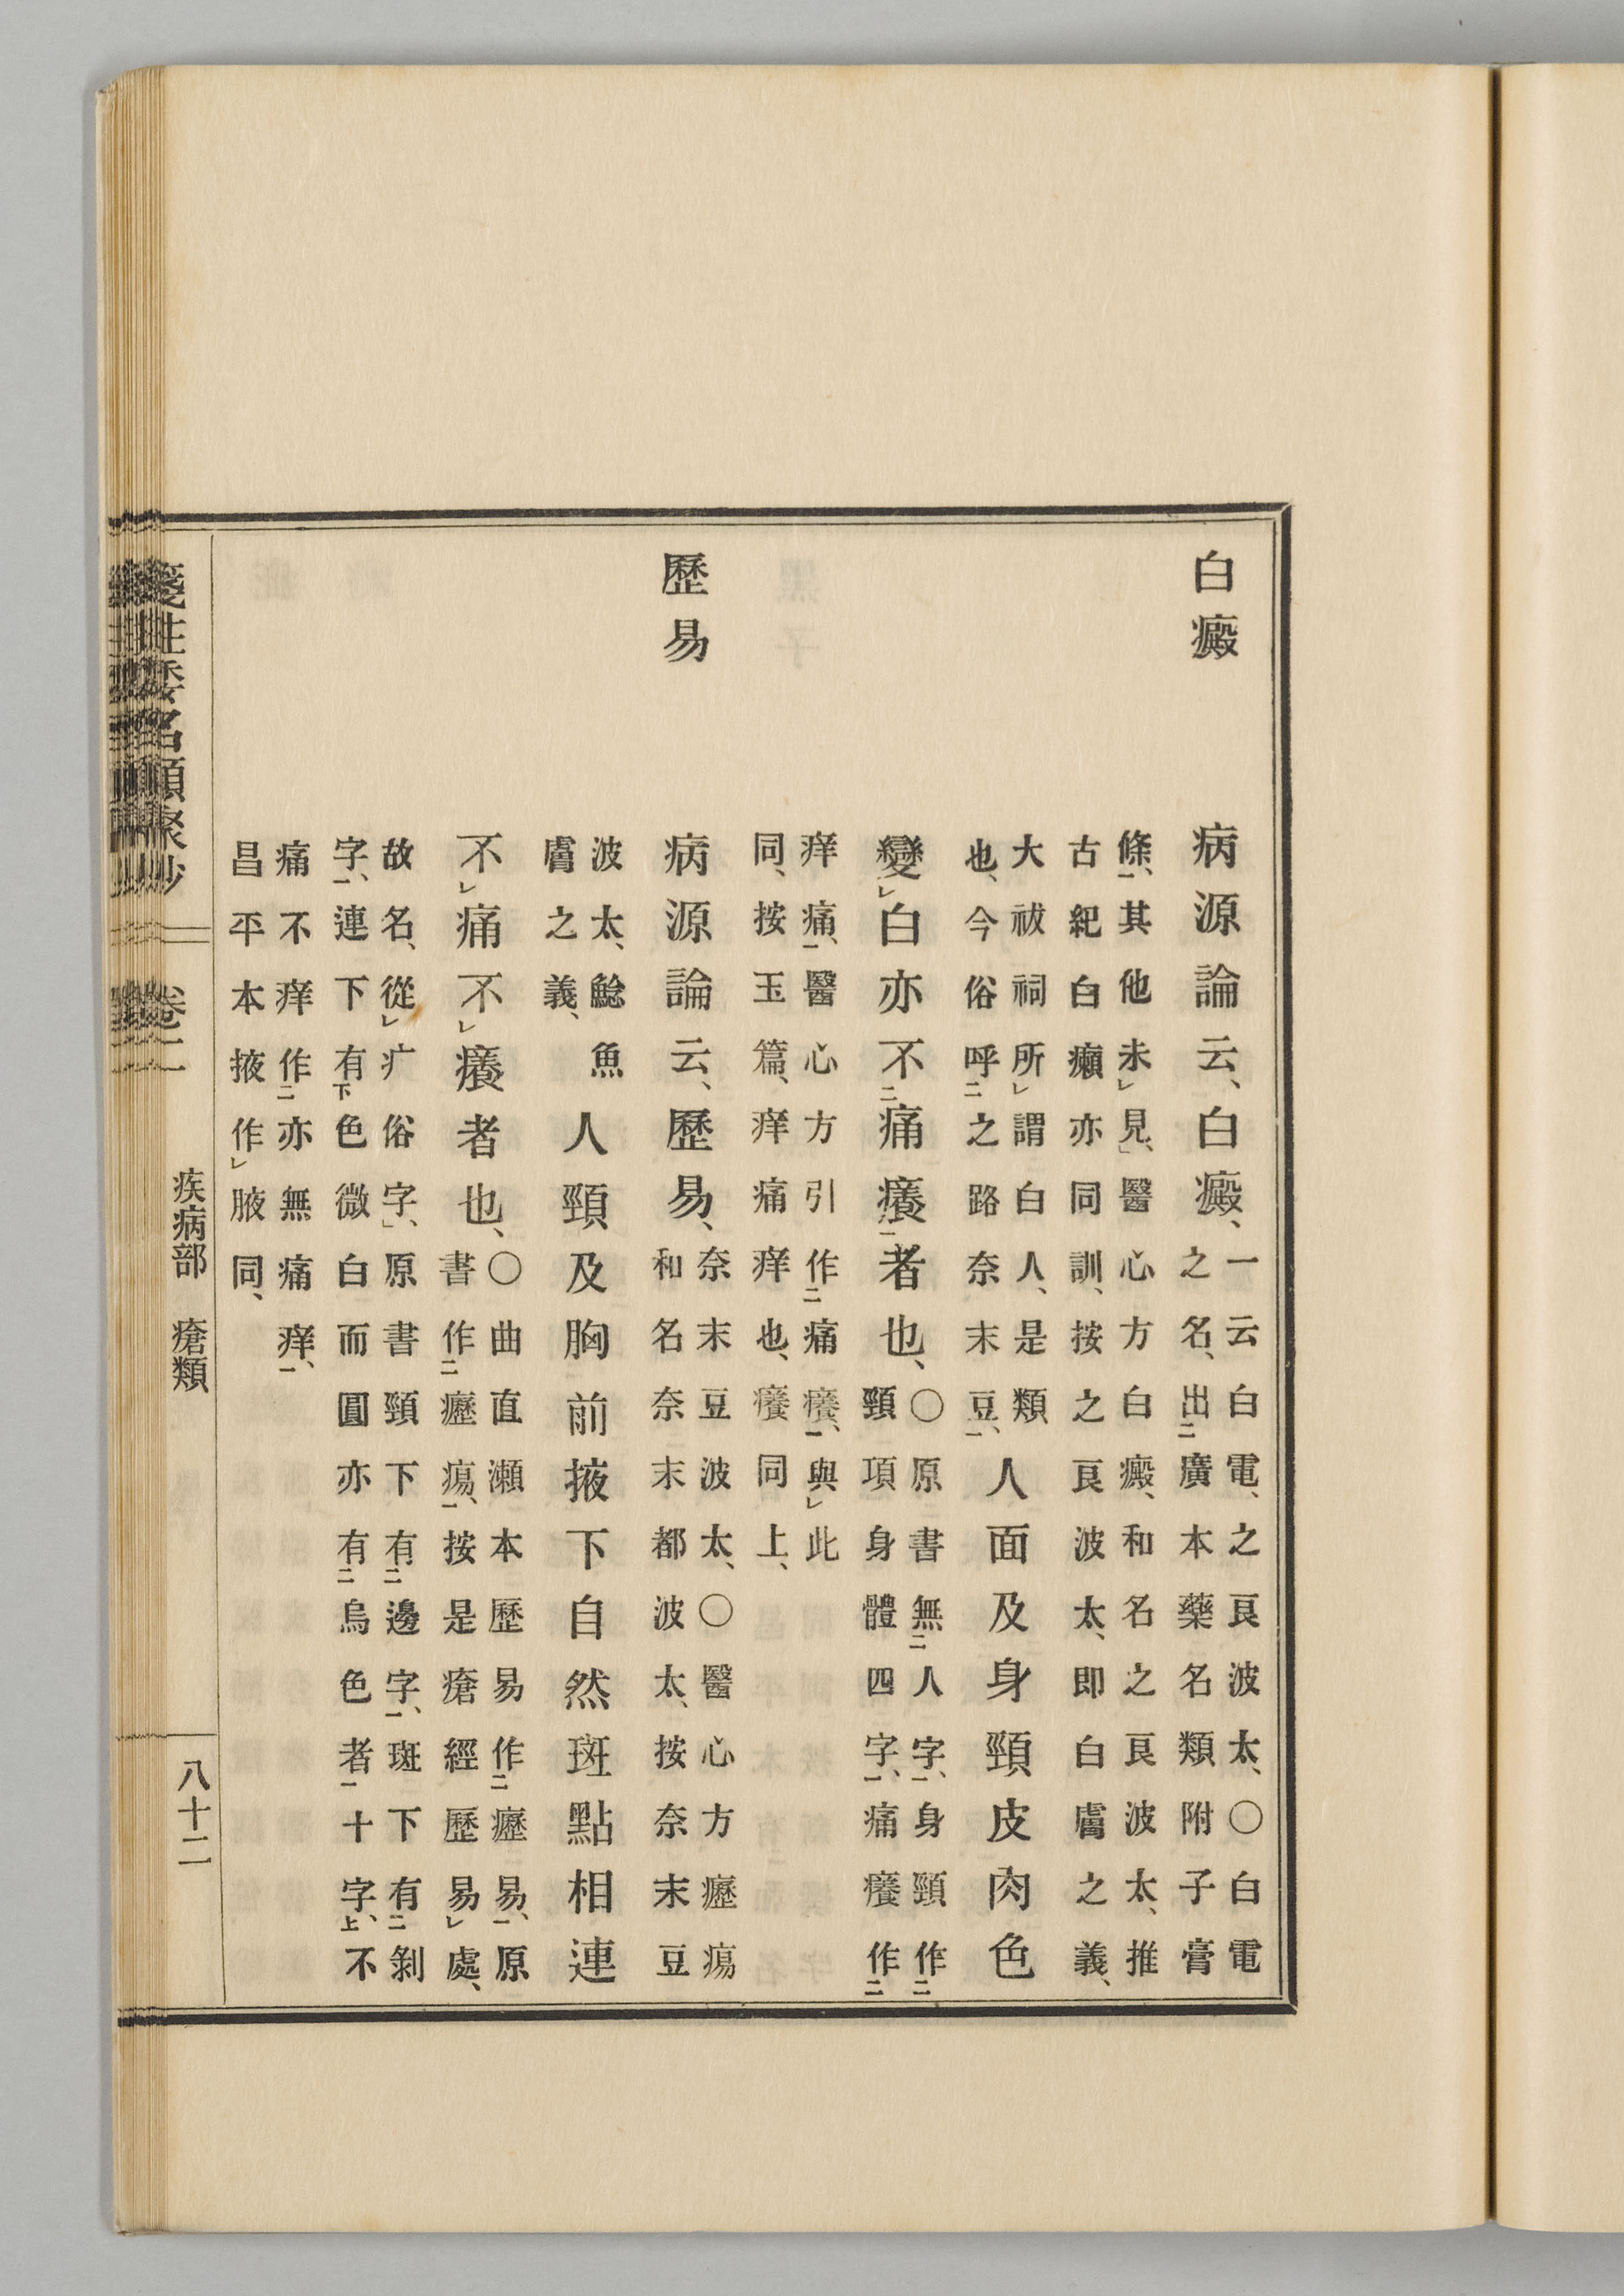 白癜
病源論云、白癜、
一云白電、之良波太、〇白電
之名、出二廣本藥名類附子膏
條一、其他未レ見、」醫心方白癜、和名之良波太、推
古紀白癩亦同訓、按之良波太、即白膚之義、
大祓祠所レ謂白人、是類
也、今俗呼二之路奈末豆一、
人面及身頸皮肉色
變レ白亦不二痛癢一者也、
〇原書無二人字一、身頸作二
頸項身體四字一、痛癢作二
痒痛一、醫心方引作二痛癢一、與レ此
同、按玉篇、痒痛痒也、癢同上、
歷易
病源論云、歷易、
奈末豆波太、〇醫心方癧瘍
和名奈末都波太、按奈末豆
波太、鯰魚
膚之義、
人頸及胸前掖下自然斑點相連
不レ痛不レ癢者也、
〇曲直瀨本歷易作二癧易一、原
書作二癧瘍一、按是瘡經歷易レ處、
故名、從レ疒俗字、」原書頸下有二邊字一、斑下有二剝
字一、連下有下色微白而圓亦有二烏色者一十字上、不
痛不痒作二亦無痛痒一、
昌平本掖作レ腋同、
箋註倭名類聚抄 卷二 疾病部 瘡類 八十二